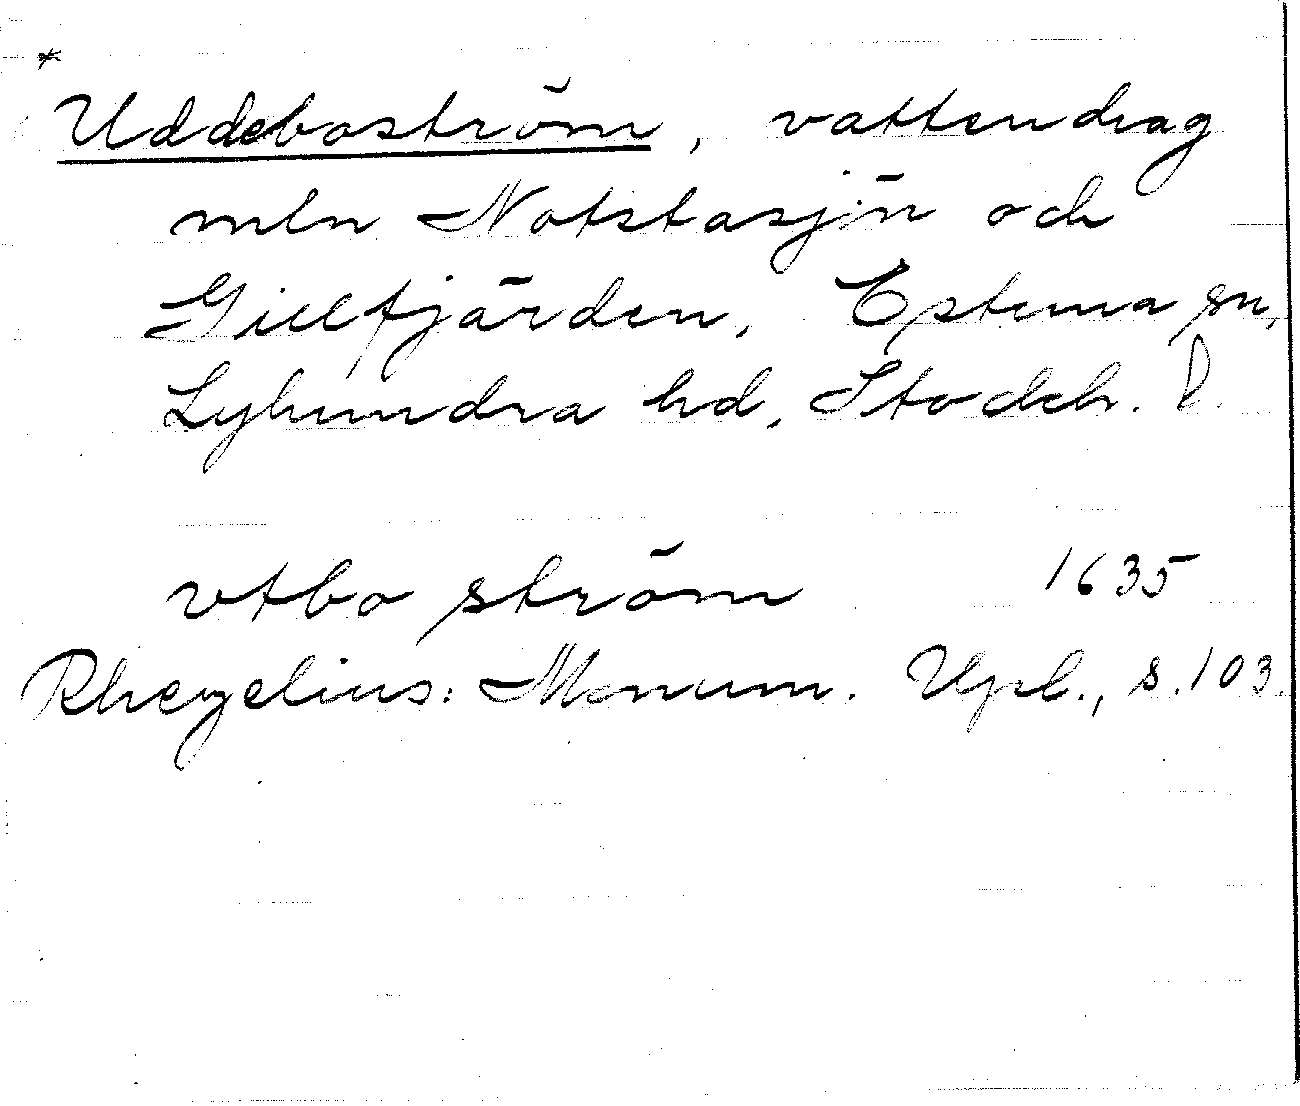 *
Uddeboström, vattendrag
mln Notstasjön och
Gillfjärden, Estuna sn,
Lyhundra hd, Stockh. l.
vtbo ström 1635
Rhezelius: Monum. Upl., s. 103.